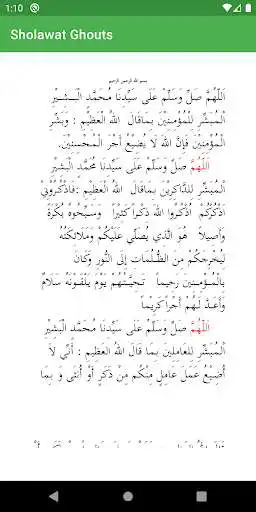 1:10
Sholawat Ghouts
بسم الله الرحمن الرحيم
اَللّٰهُمَّ صَلِّ وَسَلِّمْ عَلَى سَيِّدِنَا مُحَمَّدٍ الْبَشِيْرِ
الْمُبَشِّرِ لِلْمُؤْمِنِيْنَ بِمَاقَالَ اللهُ الْعَظِيْمِ : وَبَشِّرِ
الْمُؤْمِنِيْنَ فَإِنَّ اللهَ لَا يُضِيْعُ أَجْرَ الْمُحْسِنِيْنَ.
اَللّٰهُمَّ صَلِّ وَسَلِّمْ عَلَى سَيِّدِنَا مُحَمَّدٍ الْبَشِيْرِ
الْمُبَشِّرِ لِلذَّاكِرِيْنَ بِمَاقَالَ اللهُ الْعَظِيْمِ :فَاذْكُرُوْنِي
اَذْكُرْكُمْ اُذْكُرُوا اللهَ ذِكْرًا كَثِيْرًا وَسَبِّحُوْهُ بُكْرَةً
وَأَصِيْلاً هُوَ الَّذِي يُصَلِّي عَلَيْكُمْ وَمَلَائِكَتُهُ
لِيُخْرِجَكُمْ مِنَ الظُّلُمَاتِ إِلَى النُّوْرِ وَكَانَ
بِالْمُؤْمِنِيْنَ رَحِيْماً تَحِيَّتُهُمْ يَوْمَ يَلْقَوْنَهُ سَلَامٌ
وَأَعَدَّ لَهُمْ أَجْرًا كَرِيْمًا
اَللّٰهُمَّ صَلِّ وَسَلِّمْ عَلَى سَيِّدِنَا مُحَمَّدٍ الْبَشِيْرِ
الْمُبَشِّرِ لِلْعَامِلِيْنَ بِمَا قَالَ اللهُ الْعَظِيْمِ : أَنِّي لاَ
أُضِيْعُ عَمَلَ عَامِلٍ مِنْكُمْ مِنْ ذَكَرٍ أَوْ أُنْثَى وَ بِمَا